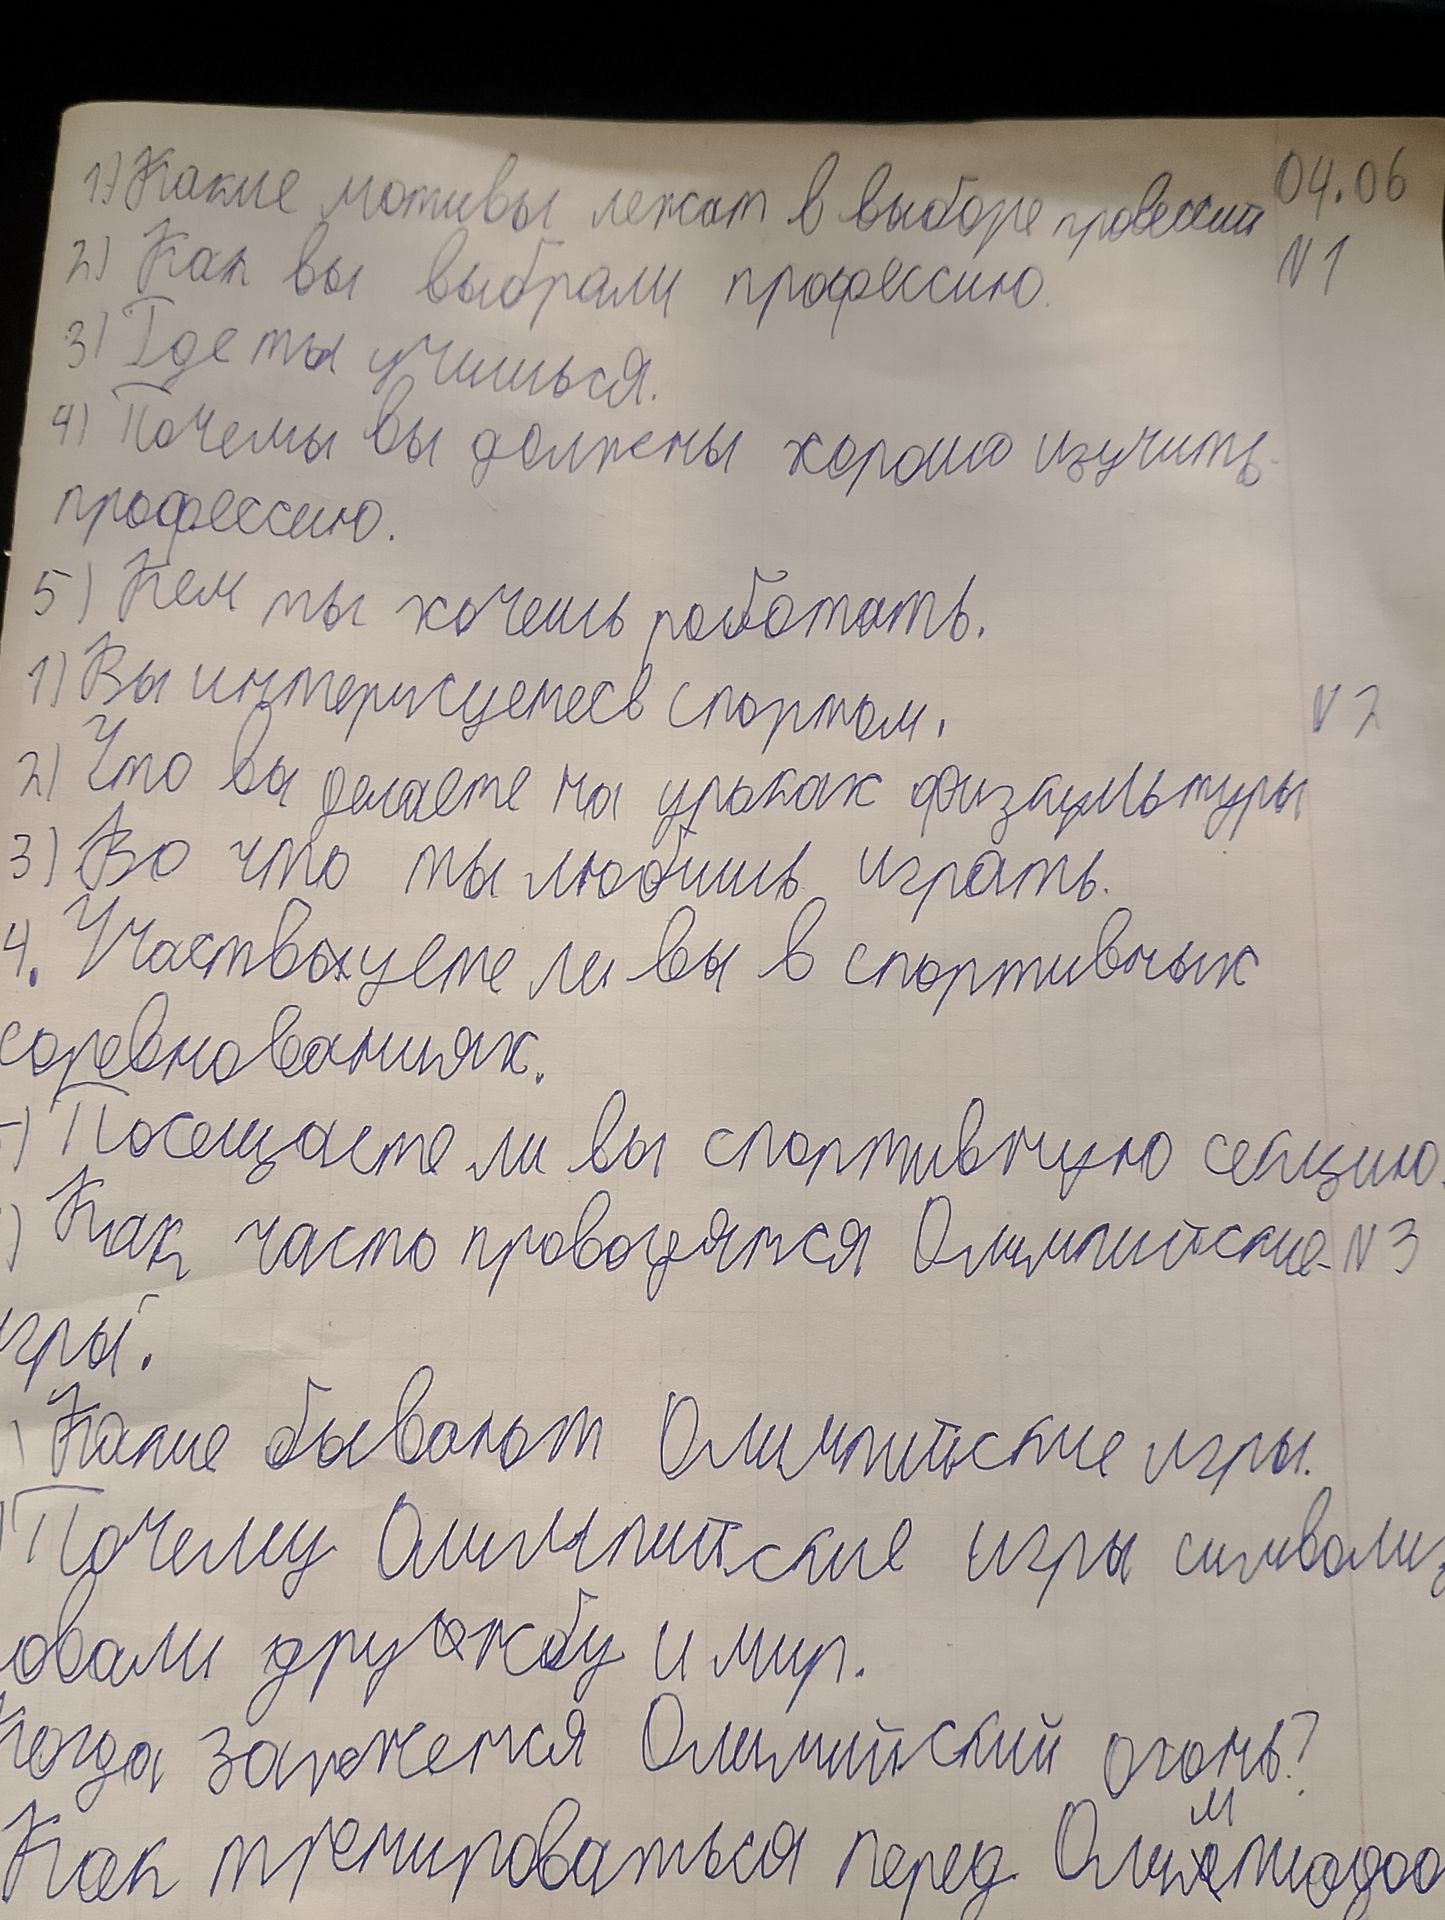 1) Какие мотивы лежат в выборе провессий 04.06
2) Как вы выбрали профессию. N1
3) Где ты учишься.
4) Почемы вы должены хорошо изучить
профессию.
5) Кем ты хочешь работать.
1) Вы интерисуетесь спортом. N2
2) Что вы делаете на уроках физкультуры
3) Во что ты любишь играть.
4. Участвохуете ли вы в спортивных
соревнованиях.
) Посещаете ли вы спортивную секцию.
) Как часто проводятся Олимпийские N3
игры.
) Какие бывают Олимпийские игры.
) Почему Олимпийские игры символиз
овали дружбу и мир.
Когда зажжется Олимпийский огонь?
Как тренироваться перед